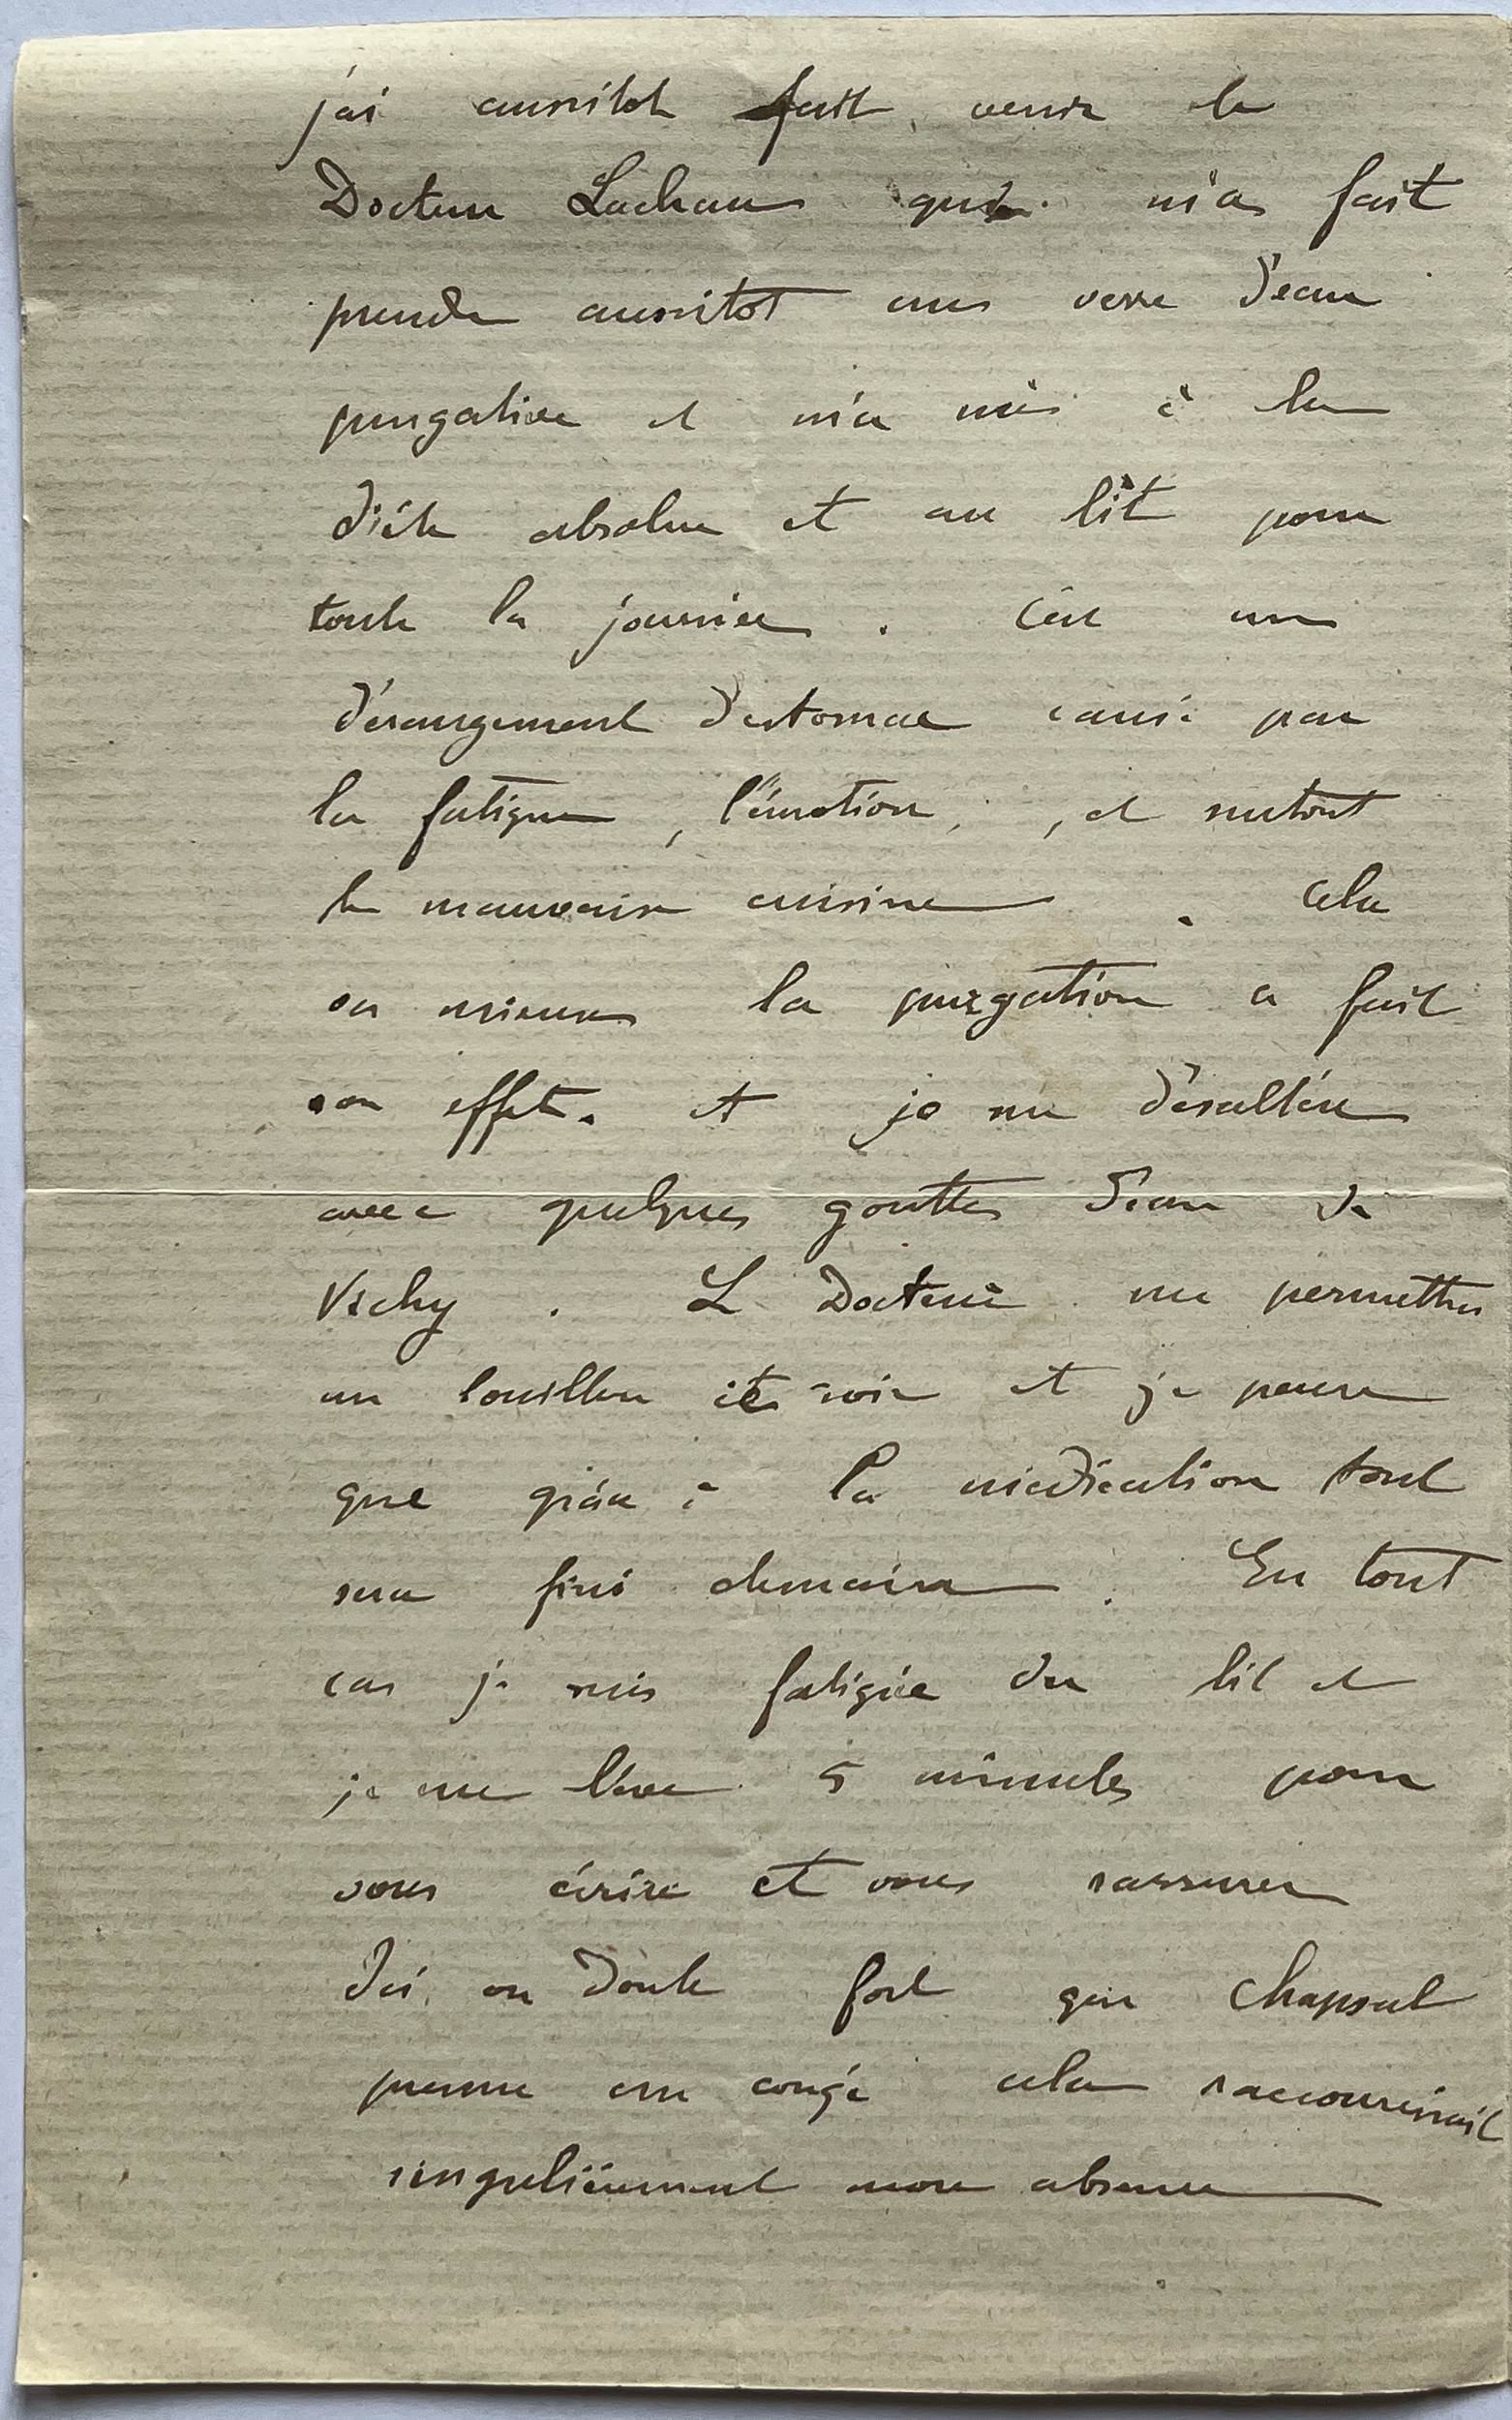 j'ai aussitot fait venir le
Docteur Lachaux qui m'a fait
prendre aussitôt un verre d'eau
purgative et m'a mis à la
diète absolue et au lit pour
toute la journée . C'est un
dérangement d'estomac causé par
la fatigue , l'émotion , et surtout
la mauvaise cuisine . Cela
va mieux la purgation a fait
son effet . et je me désaltère
avec quelques gouttes d'eau de
Vichy . Le Docteur me permettra
un bouillon ce soir et je pense
que grâce à la médication tout
sera fini demain . En tout
cas je suis fatiguée du lit et
je me lève 5 minutes pour
vous écrire et vous rassurer
Ici on doute fort que Chapsal
prenne un congé cela raccourcirait
singulièrement mon absence